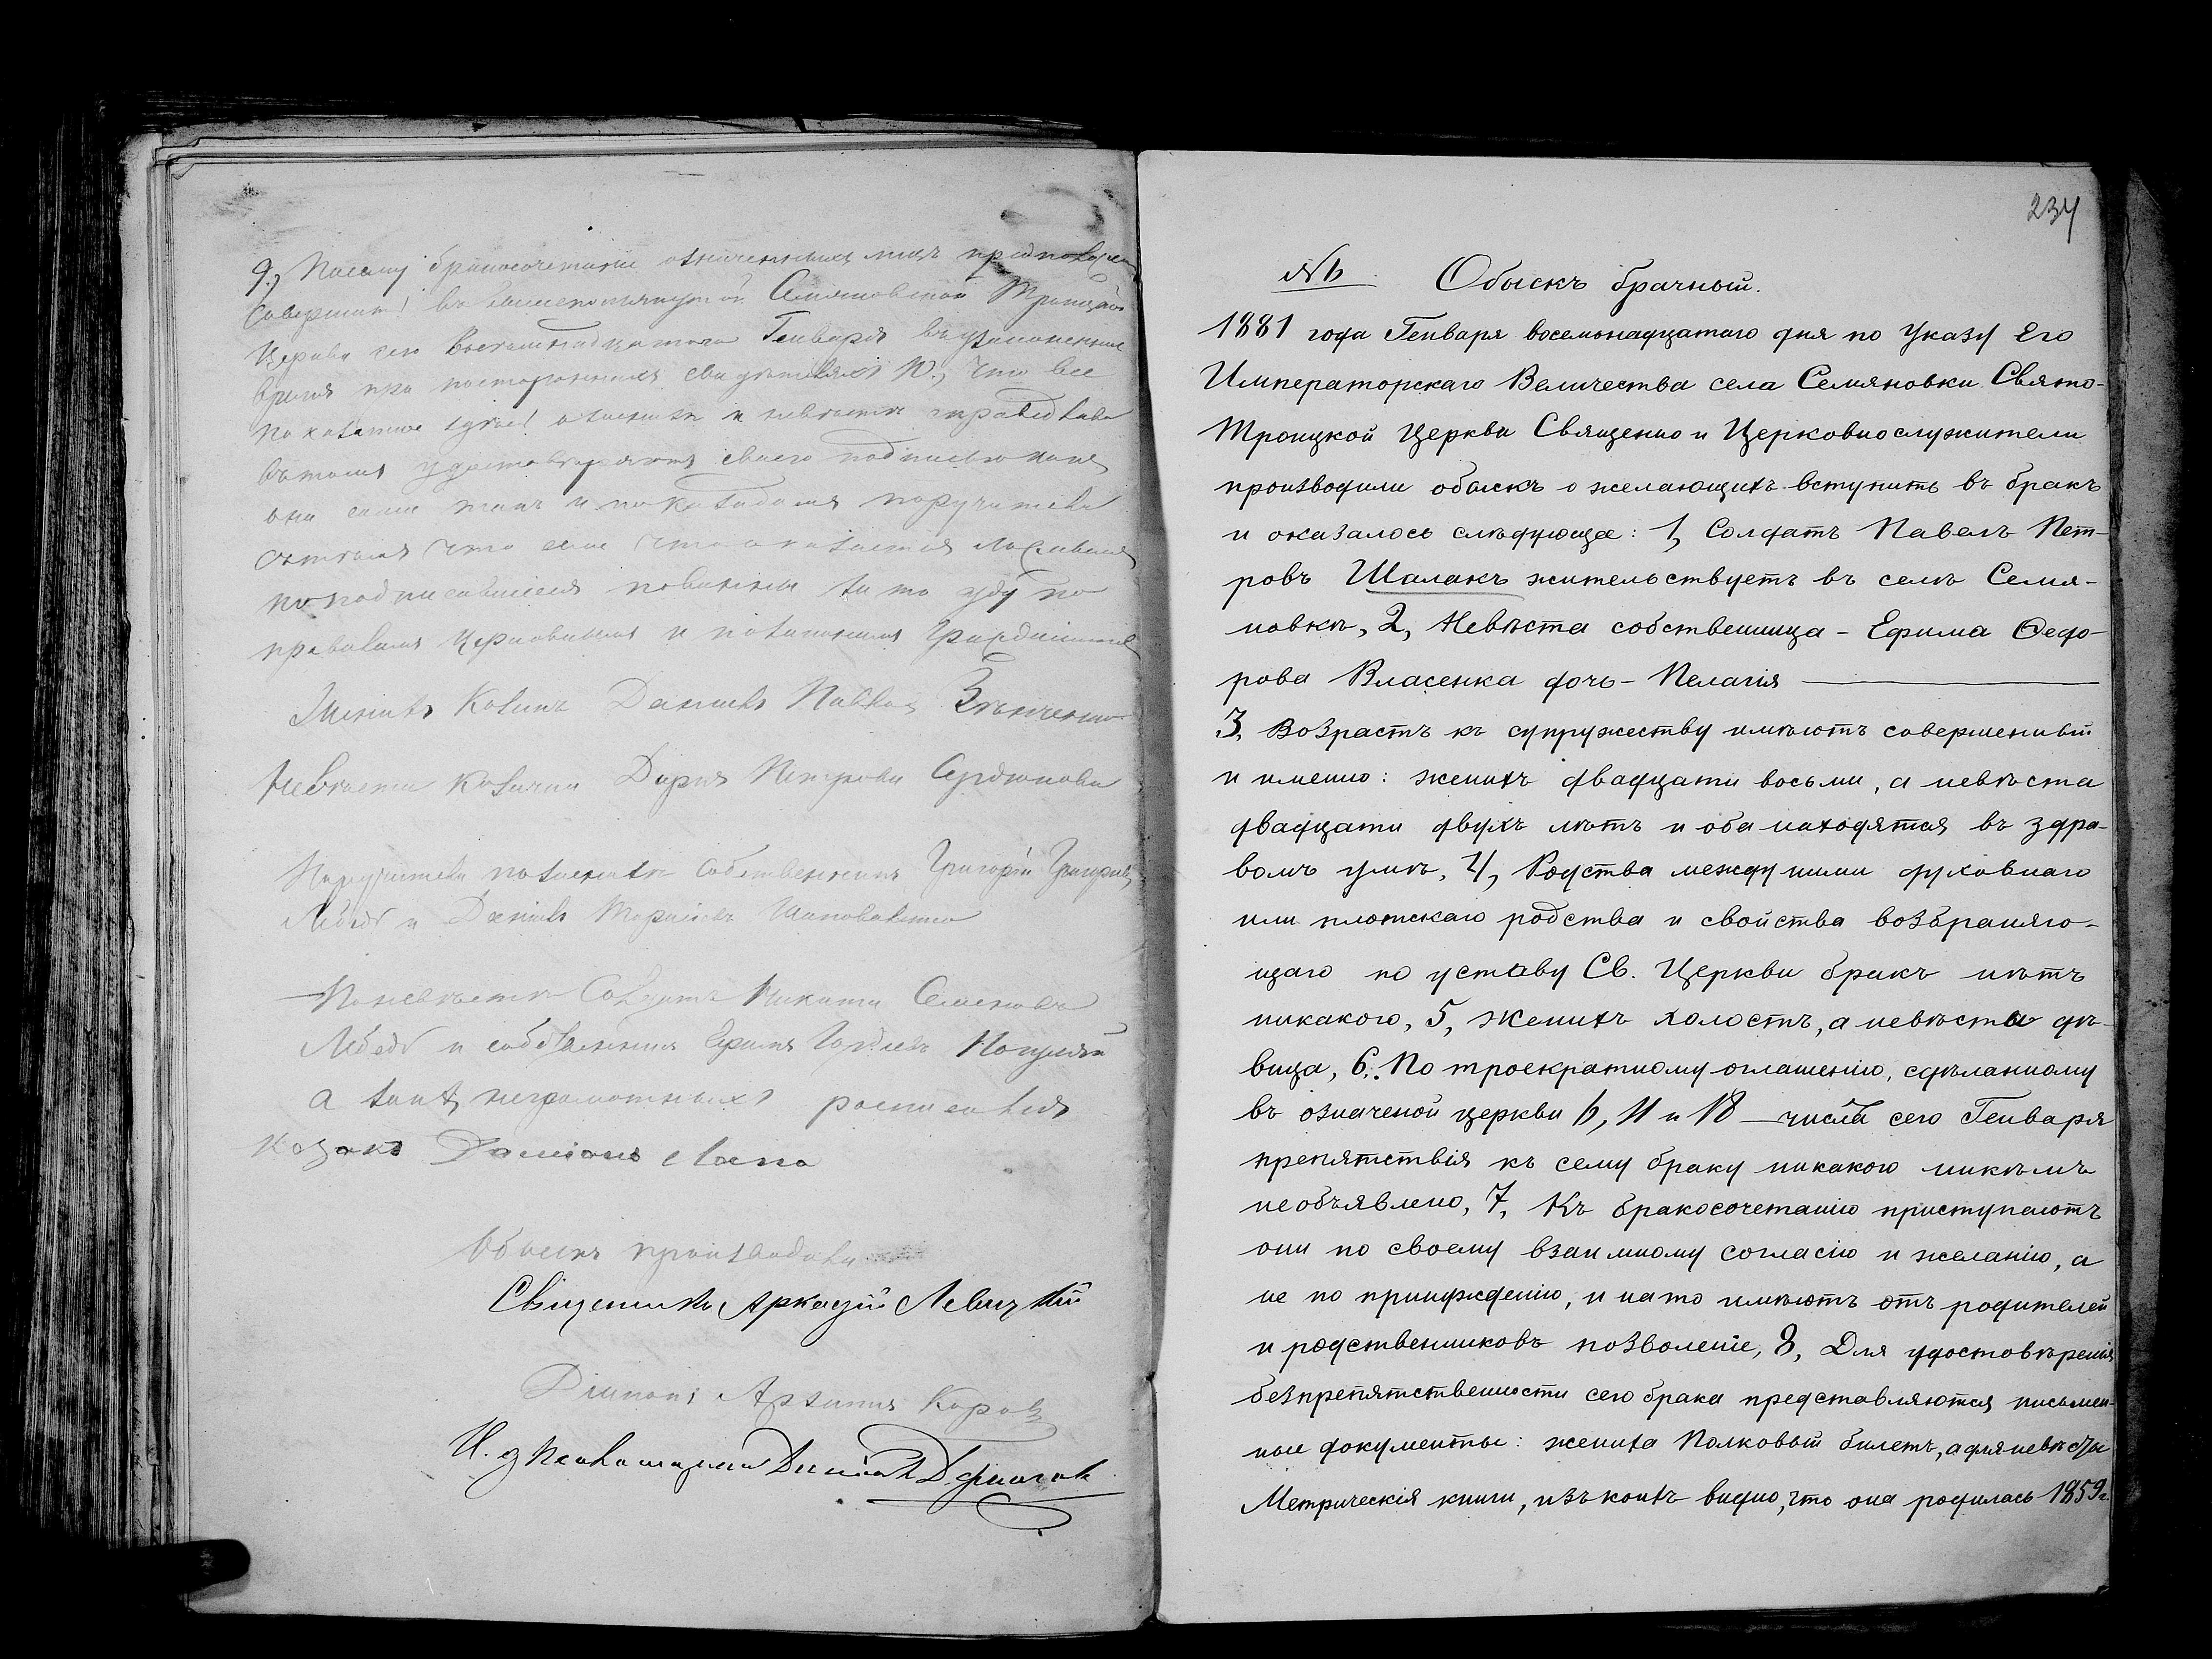 9, Посему бракосочетание означенныхъ лицъ предположено
совершить въ вышепомянутой Семяновской Троицкой
Церкви сего восемнадцатого Генваря въ узаконенное
время при постороннихъ свидѣтеляхъ 10, Что все
показанное здѣсь о женихѣ и невѣстѣ справедливо
въ томъ удостовѣряютъ своею подписью какъ
они сами такъ и по каждомъ поручители
съ тѣмъ что если что окажется ложнымъ
то подписавшіеся повинны за то суду по
правиламъ церковнымъ и по законамъ гражданскимъ
Женихъ Козакъ Даніилъ Павловъ
Невѣста Козачка Дарья Петрова Сердюкова
Поручители по женихѣ собственникъ Григорій Григорьевъ
Лебедь и Даніилъ Шаповаленко
По невѣстѣ Солдатъ Никита Семеновъ
Лебедь и собственникъ Ефимъ Гордѣевъ
а за нихъ неграмотныхъ росписался
Козакъ Даміанъ Лапа
Обыскъ производили
Священникъ Аркадій Левицкій
Діаконъ
И. д. Псаломщика
234
№ 6 Обыскъ брачный.
1881 года Генваря восемонадцатаго дня по Указу Его
Императорскаго Величества села Семяновки Свято-
Троицкой Церкви Священно и Церковнослужители
производили обыскъ о желающихъ вступить въ бракъ
и оказалось слѣдующее: 1, Солдатъ Павелъ Пет-
ровъ Шалакъ жительствуетъ въ селѣ Семя-
новкѣ, 2, Невѣста собственница - Ефима Ѳедо-
рова Власенка дочь - Пелагія
3, Возрастъ къ супружеству имѣютъ совершенный
и именно: женихъ двадцати восьми, а невѣста
двадцати двухъ лѣтъ и оба находятся въ здра-
вомъ умѣ, 4, Родства между ними духовнаго
или плотскаго родства и свойства возбраняю-
щаго по уставу Св. Церкви бракъ нѣтъ
никакого, 5, Женихъ холостъ, а невѣста дѣ-
вица, 6, По троекратному оглашенію, сдѣланному
въ означеной церкви 6, 11 и 18 – числа сего Генваря
препятствія къ сему браку никакого никѣмъ
не объявлено, 7, Къ бракосочетанію приступаютъ
они по своему взаимному согласію и желанію, а
не по принужденію, и на то имѣютъ отъ родителей
и родственниковъ позволеніе, 8, Для удостовѣренія
безпрепятственности сего брака представляются письмен-
ные документы: жениха Полковый билетъ, а для невѣсты
Метрическія книги, изъ коихъ видно, что она родилась 1859 г.